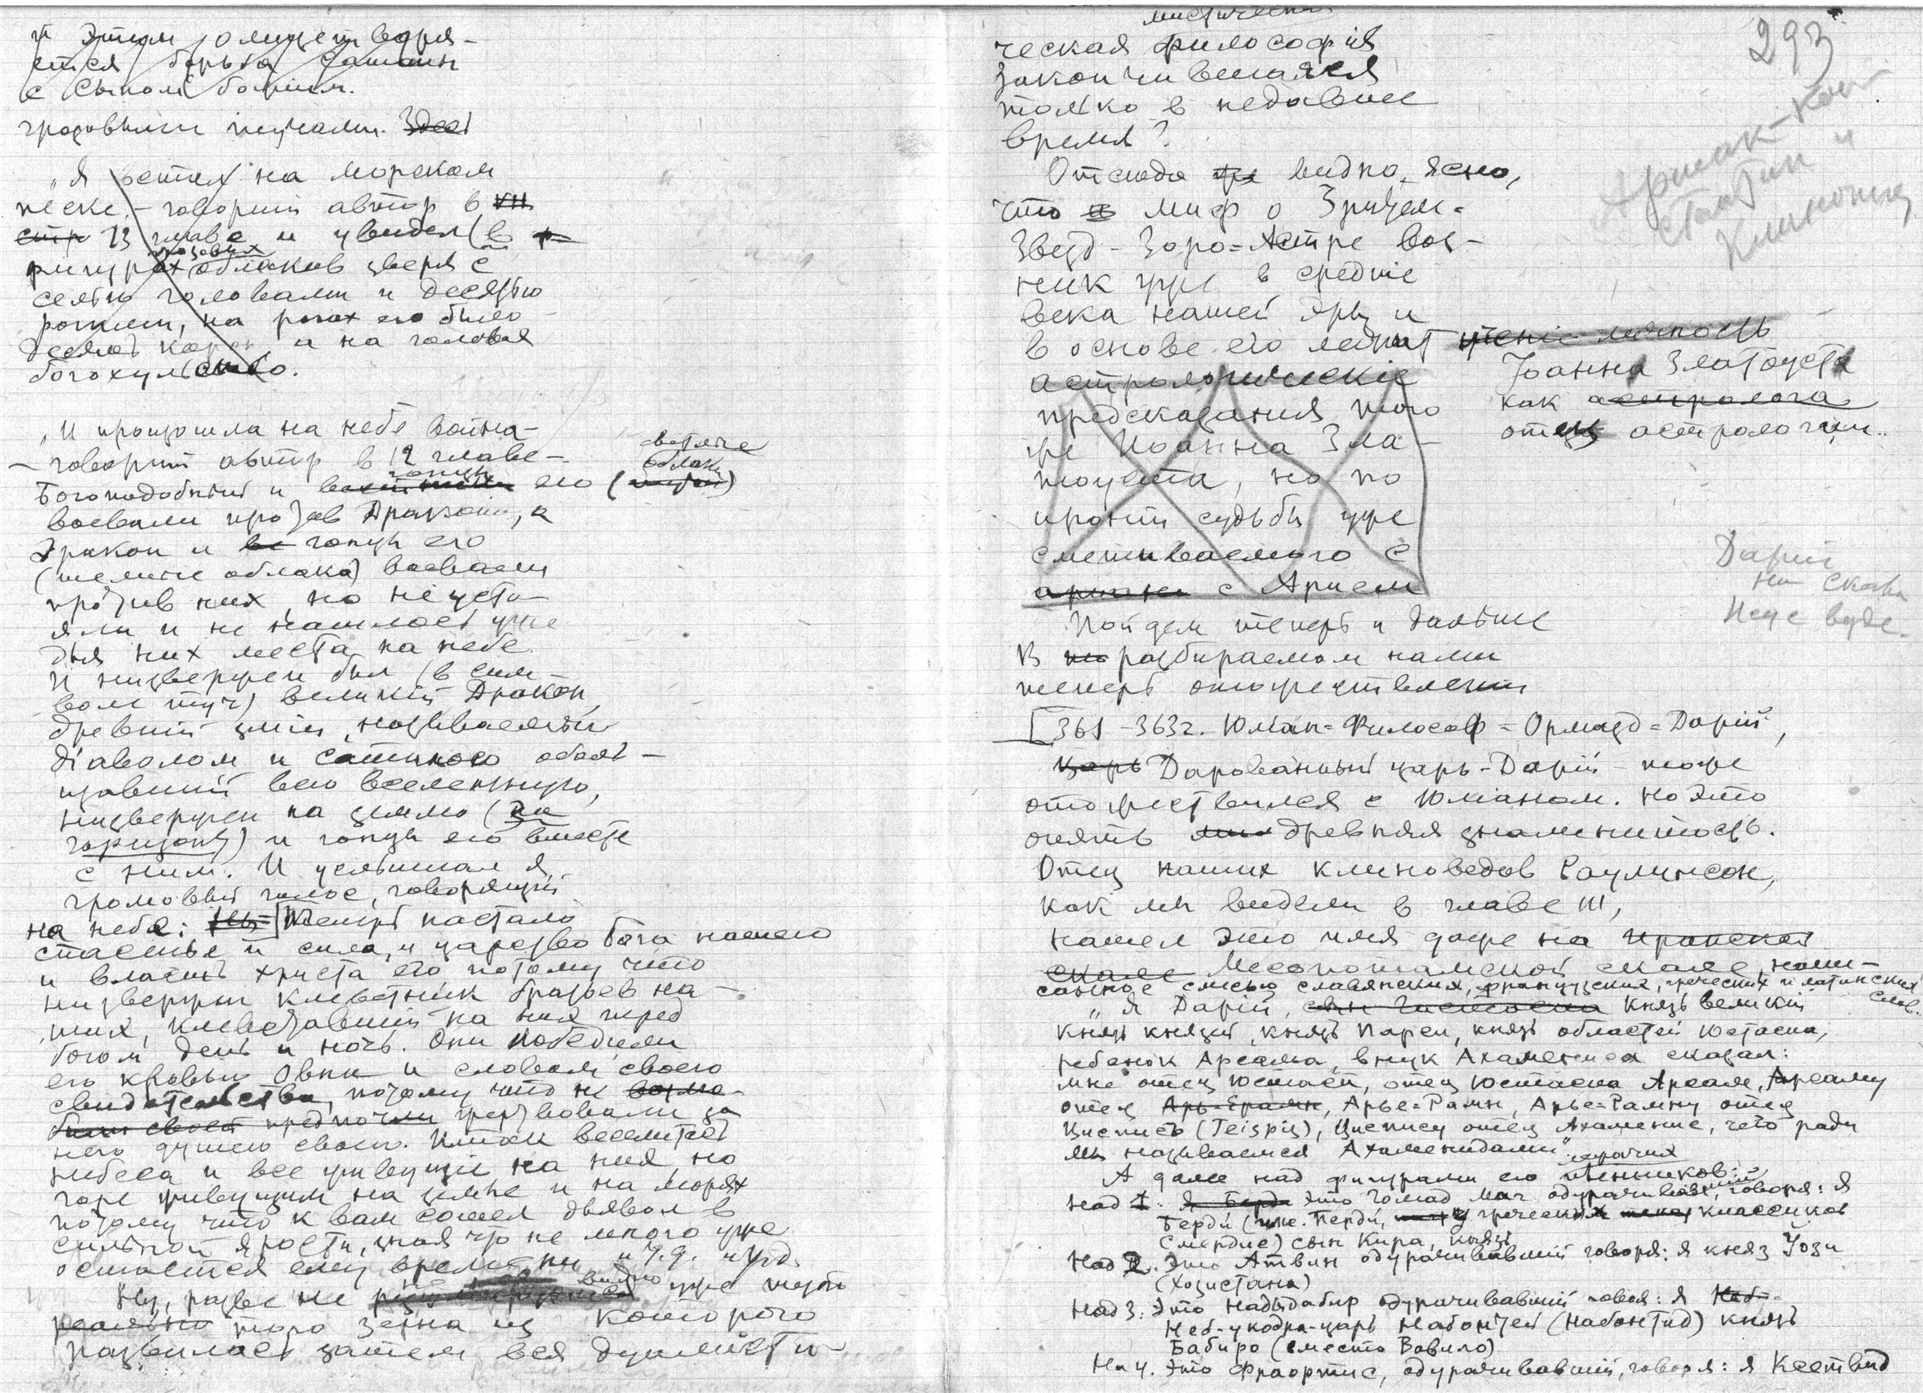 и этим олицетворя-
ется борьба сатаны
с сыном божiим.
грозовыми тучами. Здесь
„Я встал на морском
песке, – говорит автор в кн
стр 13 главе и увидел (в
грозовых
фигурах облаков зверя с
семью головами и десятью
рогами, на рогах его было
десять корон и на головах
богохульство.
„И произошла на небе война –
– говорит автор в 12 главе –
светлые
гонцы облака
Богоподобный и его (
воевали против Дракона, а
Дракон и гонцы его
(темные облака) воевали
против них, но не усто-
яли и не нашлось уже
для них места на небе.
И низвержен был (в сим-
воле туч) великiй Дракон,
древнiй змiй, называемый
дiаволом и сатаною, оболь-
щавшiй всю вселенную,
низвержен на землю (за
горизонт) и гонцы его вместе
с ним. И услышал я
громовый голос, говорящiй
на небе: Теперь настало
спасенье и сила, и царство бога нашего
и власть христа его потому что
низвержен клеветник братьев на-
ших, клеветавшiй на них перед
богом день и ночь. Они победили
его кровью Овна и словом своего
свидетельства, потому что не возлю-
били своей предпочли жертвовали за
него душою своею. Итак веселитесь
небеса и все живущiе на них, но
горе живущим на земле и на морях
потому что к вам сошел дьявол в
сильной ярости, зная что не много уже
остается ему времени и т.д.
Ну, разве не видно уже тут
реально того зерна из которого
развилась затем вся дуалисти-
мистическая
ческая философiя
закончившаяся
только в недавнее
время?
293
Аршак-Кон
стантин и
Клинопись
Отсюда видно, ясно,
что миф о Зрителе-
Звезд – Зоро=Астре воз-
ник уже в среднiе
века нашей эры и
в основе его лежит личность
Iоанна Златоуста
как астролога
отец астрологiи..
астрологическiе
предсказания того
же Иоанна Зла-
тоуста, но по
иронiи судьбы уже
смешиваемого с
с Арием
Дарий
на скалы
Пойдем теперь и дальше
В разбираемом нами
теперь отожествленiи
[361 – 363 г. Юлiан=Философ = Ормазд = Дарiй,
царь Дарованный царь – Дарiй – тоже
отожествился с Юлiаном. Но это
опять древняя знаменитость.
Отец наших клиноведов Раулинсон,
как мы видели в главе III,
нашел это имя даже на Иранской
скале Месопотамской скале, напи-
санное смесью славянских, французских, греческих и латинских
слов.
„Я Дарiй, сын Гистаспа князь великiй
князь князей, князь Парси, князь областей Юстаспа,
ребенок Арсама, внук Ахаменеса сказал:
мне отец Юстасп, отец Юстаспа Арсам, Арсаму
отец Арье-Рамн, Арье-Рамну отец
Циспись (Teispis), Циспису отец Ахаменес, чего ради
мы называемся Ахаменидами“.
прочих
А далее над фигурами его пленников:
Над 1: Я Берд Это Гомад маг одурачивавшiй, говоря: Я
Берди (или Перди, у греческих классиков
Смердис) сын Кира, князь
Над 2. Это Атвин одурачивавшiй говоря: я князь Уози
(Хозистана)
Над 3: Это Надидабир одурачивавший говоря: я Неб-
Неб-укодра-царь Набончей (Набонтид) князь
Бабиро (вместо Вавило)
На 4. Это Фраортис, одурачивавшiй, говоря: я Ксетвид